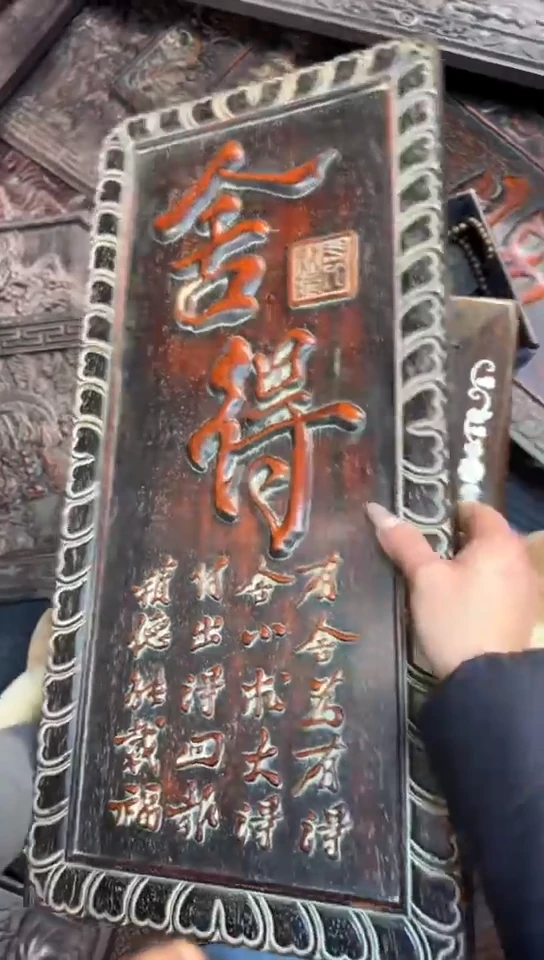 舍得
有舍有得
舍小求大得
付出得回报
積德能載福